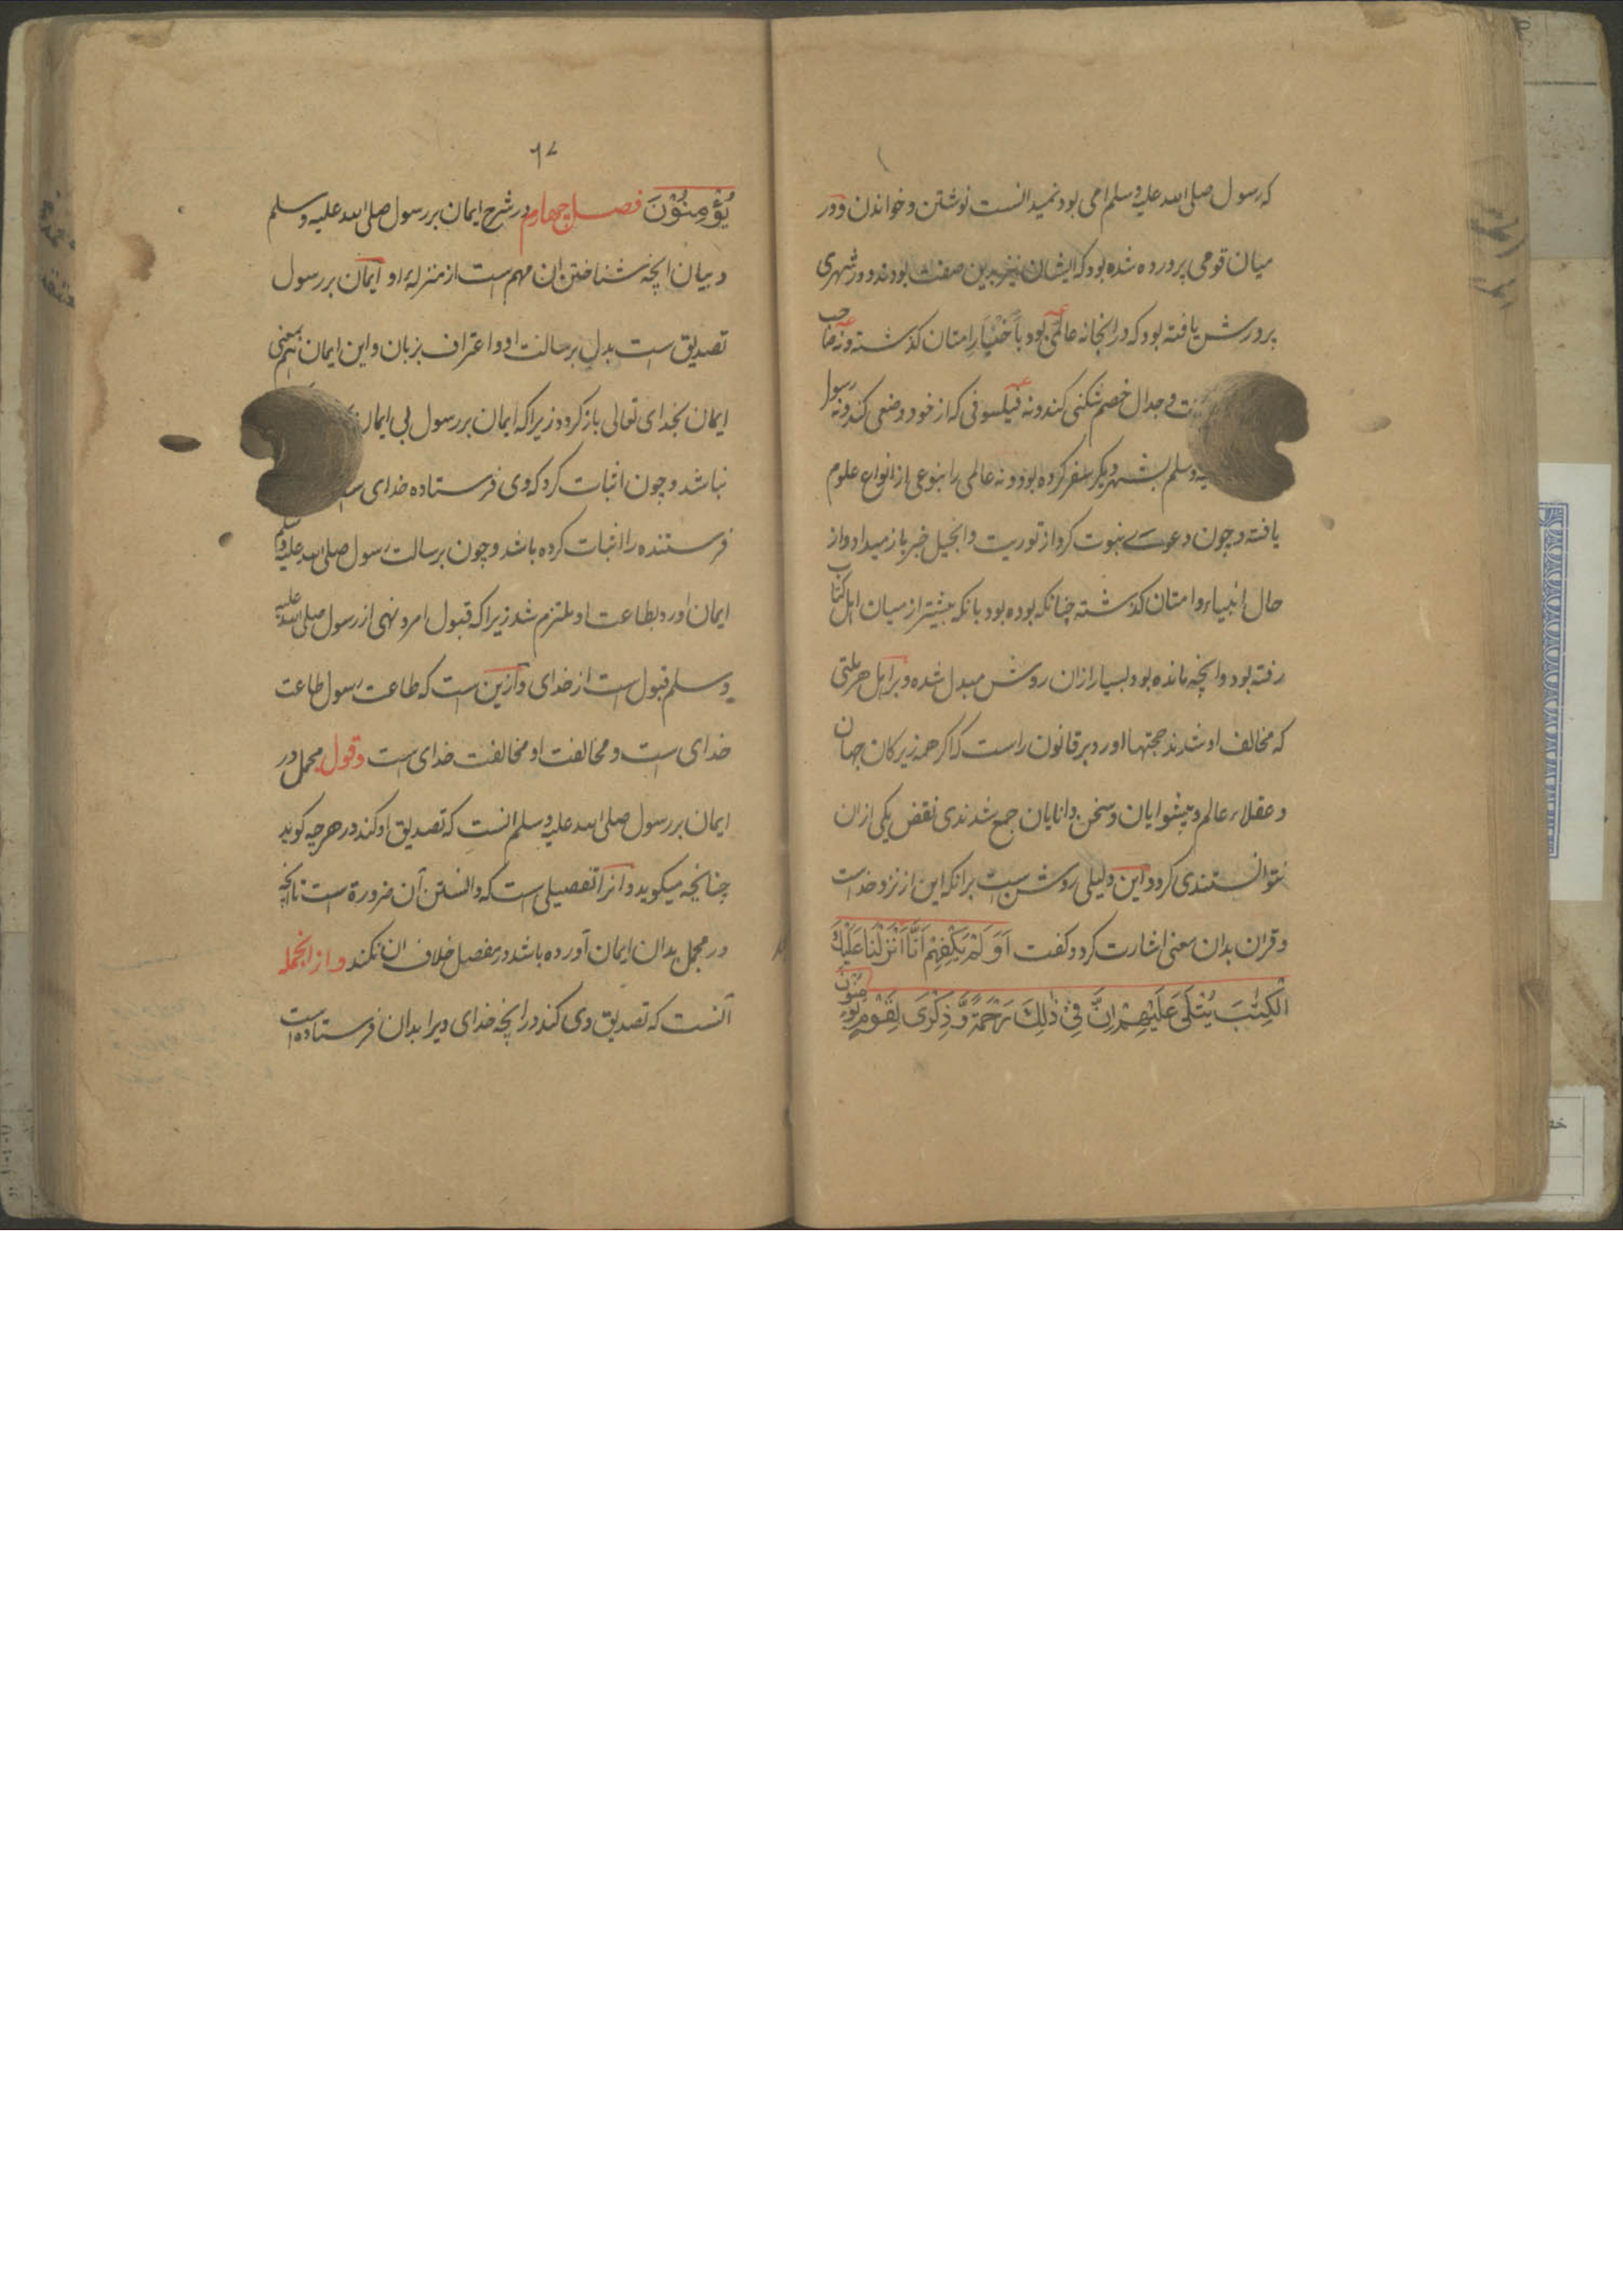 که رسول صلی الله علیه وسلم امی بود نمیدانست نوشتن و خواندن و در
میان قومی پرورده شده بود که ایشان نیز بدین صفت بودند و در شهری
پرورش یافته بود که در انجا نه عالمی بود با خبار امتان کذشته و نه صاحب
و جدال خصم شکنی کند و نه فیلسوفی که از خود وضعی کند و نه رسول
یه وسلم بشهر دیکر سفر کرده بود و نه عالمی را بنوعی از انواع علوم
یافته و چون دعوے نبوت کرد از توریت و انجیل خبر باز میداد و از
حال انبیاء و امتان کذشته چنانکه بوده بود بانکه بیشتر از میان اهل کتاب
رفته بود و انچه مانده بود بسیار از ان روشن مبدل شده و بر اهل هر ملتی
که مخالف او شدند حجتها اورد بر قانون راست که اکر همه زیرکان جهان
و عقلاء عالم و پیشوایان و سخن دانایان جمع شدندی نقض یکی از ان
نتوانستندی کرد و این دلیلی روشن ست برانکه این از نزد خداست
و قران بدان معنی اشارت کرد و کفت اَوَ لَمْ یَکْفِهِمْ اَنَّا اَنْزَلْنَا عَلَیْكَ
الْکِتٰبَ یُتْلٰی عَلَیْهِمْ اِنَّ فِیْ ذٰلِكَ لَرَحْمَةً وَّ ذِکْرٰی لِقَوْمٍ یُّؤْمِنُوْنَ
٦٧
یُؤْمِنُوْنَ فصل چهارم در شرح ایمان بر رسول صلی الله علیه وسلم
و بیان انچه شناختن ان مهم ست از منزلهٔ او ایمان بر رسول
تصدیق ست بدل برسالت او و اعتراف بزبان و این ایمان بمعنی
ایمان بخدای تعالی باز کردد زیراکه ایمان بر رسول بی ایمان
نباشد و چون اثبات کرد که وی فرستاده خدای ست
فرستنده را اثبات کرده باشد و چون برسالت رسول صلی الله علیه وسلم
ایمان اورد بطاعت او ملتزم شد زیراکه قبول امر و نهی از رسول صلی الله علیه
وسلم قبول ست از خدای و ازین ست که طاعت رسول طاعت
خدای ست و مخالفت او مخالفت خدای ست و قول مجمل در
ایمان بر رسول صلی الله علیه وسلم انست که تصدیق او کند در هرچه کوید
چنانچه میکوید و انرا تفصیلی ست که دانستن آن ضرورة ست تا انچه
در مجمل بدان ایمان آورده باشد در مفصل خلاف ان نکند و از انجمله
آنست که تصدیق وی کند در انچه خدای ویرا بدان فرستاده است